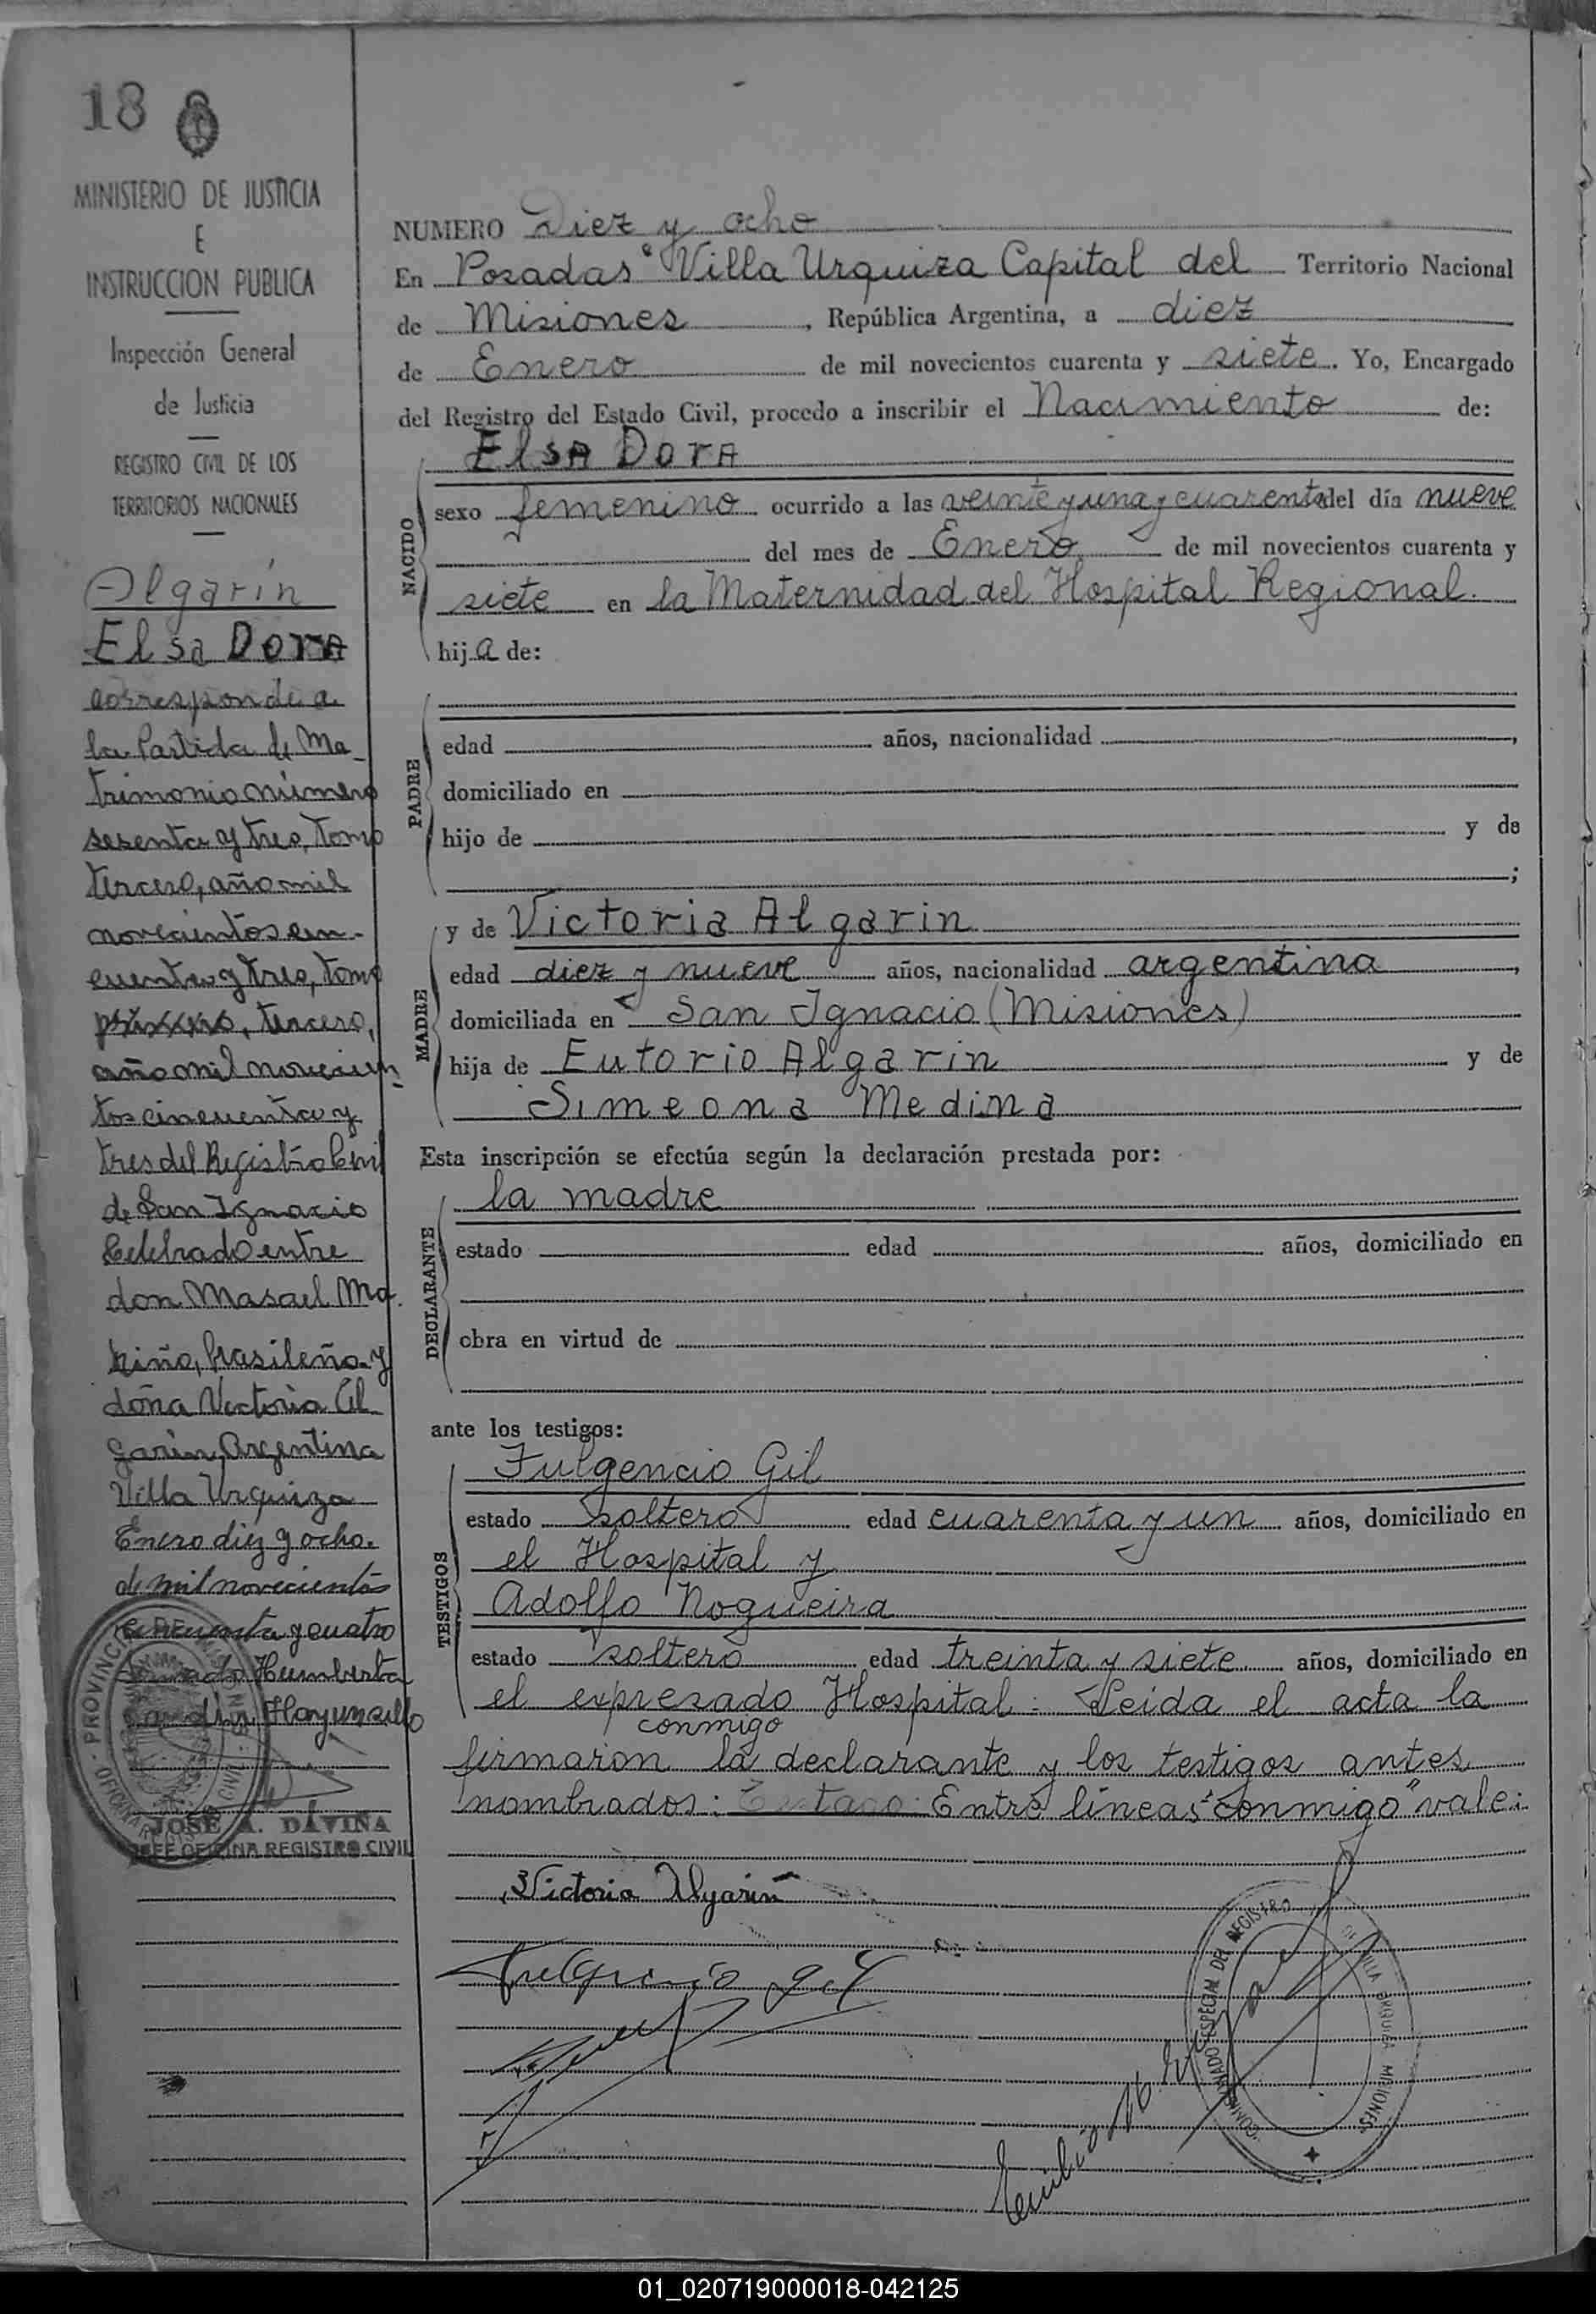 18
MINISTERIO DE JUSTICIA
E
INSTRUCCION PUBLICA
Inspección General
de Justicia
REGISTRO CIVIL DE LOS
TERRITORIOS NACIONALES
Algarín
Elsa Dora
corresponde a
la Partida de Ma-
trimonio número
sesenta y tres, tomo
tercero, año mil
novecientos cin-
cuenta y tres, tomo
tercero,
año mil novecien-
tos cincuenta y
tres del Registro Civil
de San Ignacio
Celebrado entre
don Masael Ma-
riño, brasileño y
doña Victoria Al-
garin, Argentina
Villa Urquiza
Enero diez y ocho
de mil novecientos
cincuenta y cuatro
Humberto
JOSE A. DAVIÑA
JEFE OFICINA REGISTRO CIVIL
NUMERO Diez y ocho
En Posadas "Villa Urquiza Capital del Territorio Nacional
de Misiones, República Argentina, a diez
de Enero de mil novecientos cuarenta y siete. Yo, Encargado
del Registro del Estado Civil, procedo a inscribir el Nacimiento de:
Elsa Dora
NACIDO
sexo femenino ocurrido a las veinte y una y cuarenta del día nueve
del mes de Enero de mil novecientos cuarenta y
siete en la Maternidad del Hospital Regional.
hija de:
PADRE
edad años, nacionalidad ,
domiciliado en
hijo de y de
;
y de Victoria Algarin
MADRE
edad diez y nueve años, nacionalidad argentina ,
domiciliada en San Ignacio (Misiones)
hija de Eutorio Algarin y de
Simeona Medina
Esta inscripción se efectúa según la declaración prestada por:
la madre
DECLARANTE
estado edad años, domiciliado en
obra en virtud de
ante los testigos:
Fulgencio Gil
TESTIGOS
estado soltero edad cuarenta y un años, domiciliado en
el Hospital y
Adolfo Nogueira
estado soltero edad treinta y siete años, domiciliado en
el expresado Hospital: Leida el acta la
conmigo
firmaron la declarante y los testigos antes
nombrados: Entre líneas "conmigo" vale:
Victoria Algarin
Fulgencio Gil
Emilio
COMISIONADO ESPECIAL DEL REGISTRO VILLA URQUIZA MISIONES
01_020719000018-042125